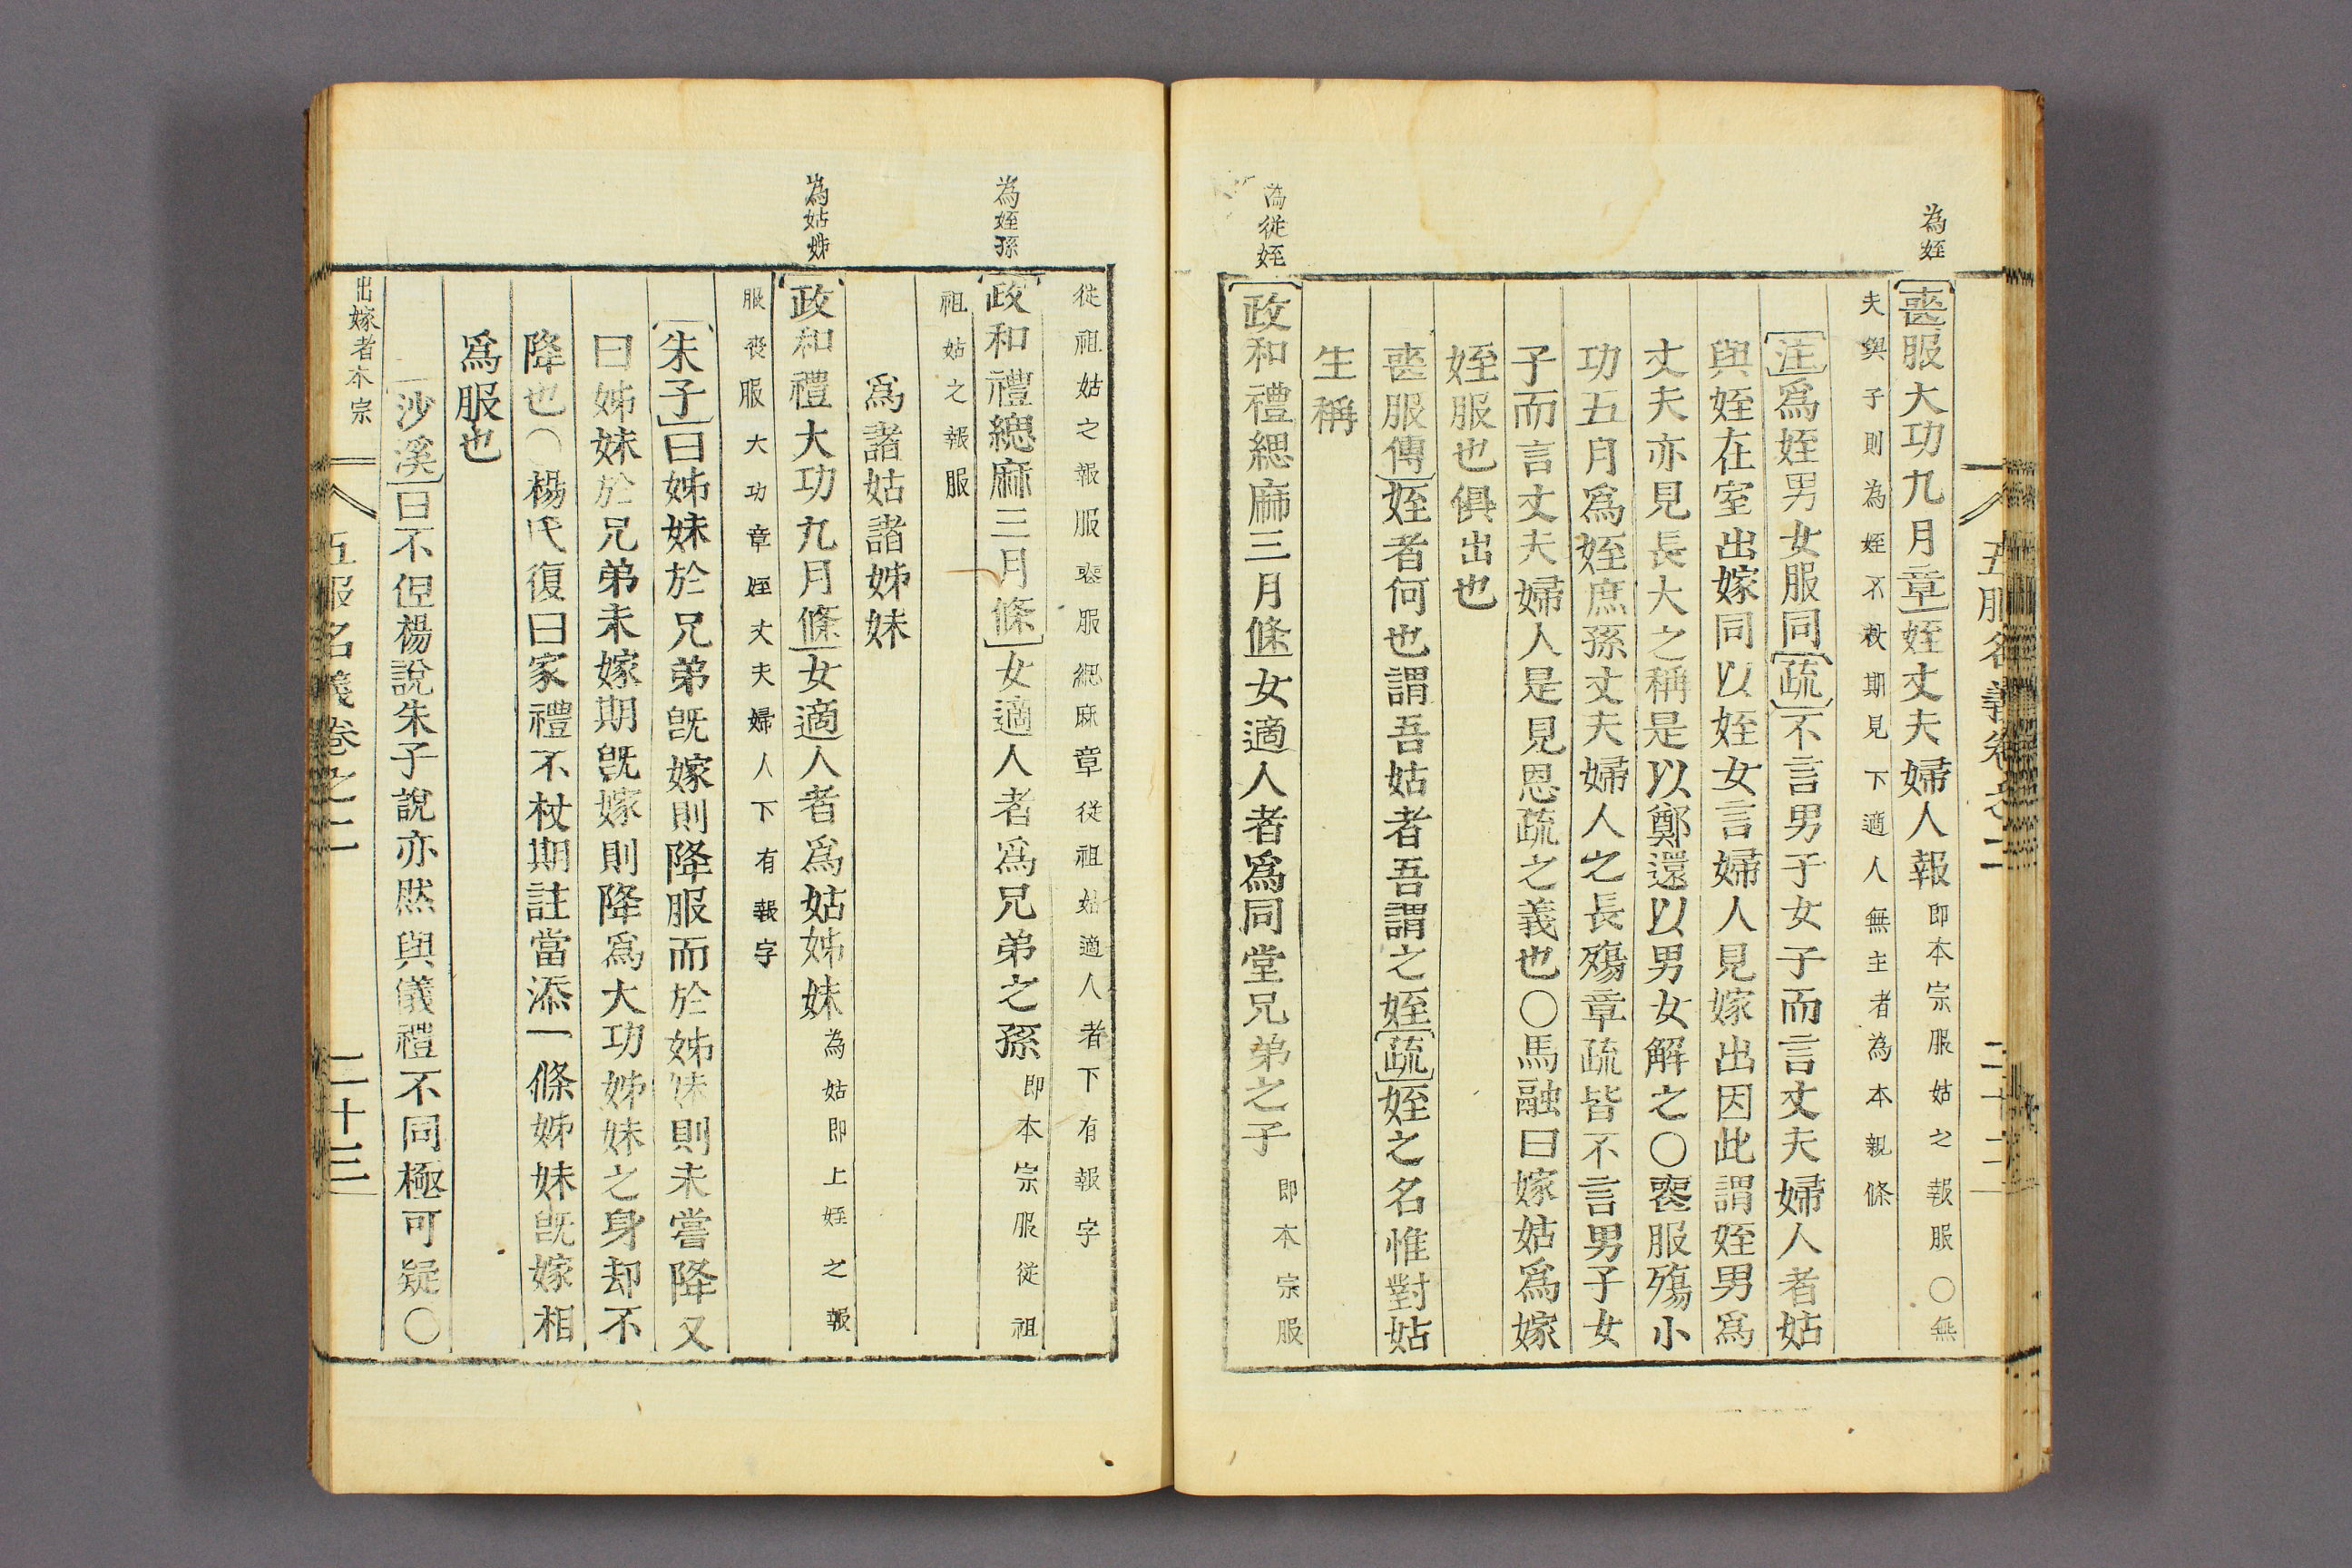 五服名義卷之二
二十二
為姪
喪服大功九月章姪丈夫婦人報即本宗服姑之報服○無
夫與子則為姪不杖期見下適人無主者為本親條
注爲姪男女服同疏不言男子女子而言丈夫婦人者姑
與姪在室出嫁同以姪女言婦人見嫁出因此謂姪男爲
丈夫亦見長大之稱是以鄭還以男女解之○喪服殤小
功五月爲姪庶孫丈夫婦人之長殤章疏皆不言男子女
子而言丈夫婦人是見恩疏之義也○馬融曰嫁姑爲嫁
姪服也俱出也
喪服傳姪者何也謂吾姑者吾謂之姪疏姪之名惟對姑
生稱
為從姪
政和禮緦麻三月條女適人者爲同堂兄弟之子即本宗服
從祖姑之報服喪服緦麻章從祖姑適人者下有報字
為姪孫
政和禮緦麻三月條女適人者爲兄弟之孫即本宗服從祖
祖姑之報服
爲諸姑諸姊妹
為姑姊
政和禮大功九月條女適人者爲姑姊妹為姑即上姪之報
服喪服大功章姪丈夫婦人下有報字
朱子曰姊妹於兄弟旣嫁則降服而於姊妹則未嘗降又
曰姊妹於兄弟未嫁期旣嫁則降爲大功姊妹之身却不
降也○楊氏復曰家禮不杖期註當添一條姊妹旣嫁相
爲服也
沙溪曰不但楊說朱子說亦然與儀禮不同極可疑○
出嫁者本宗
五服名義卷之二
二十三